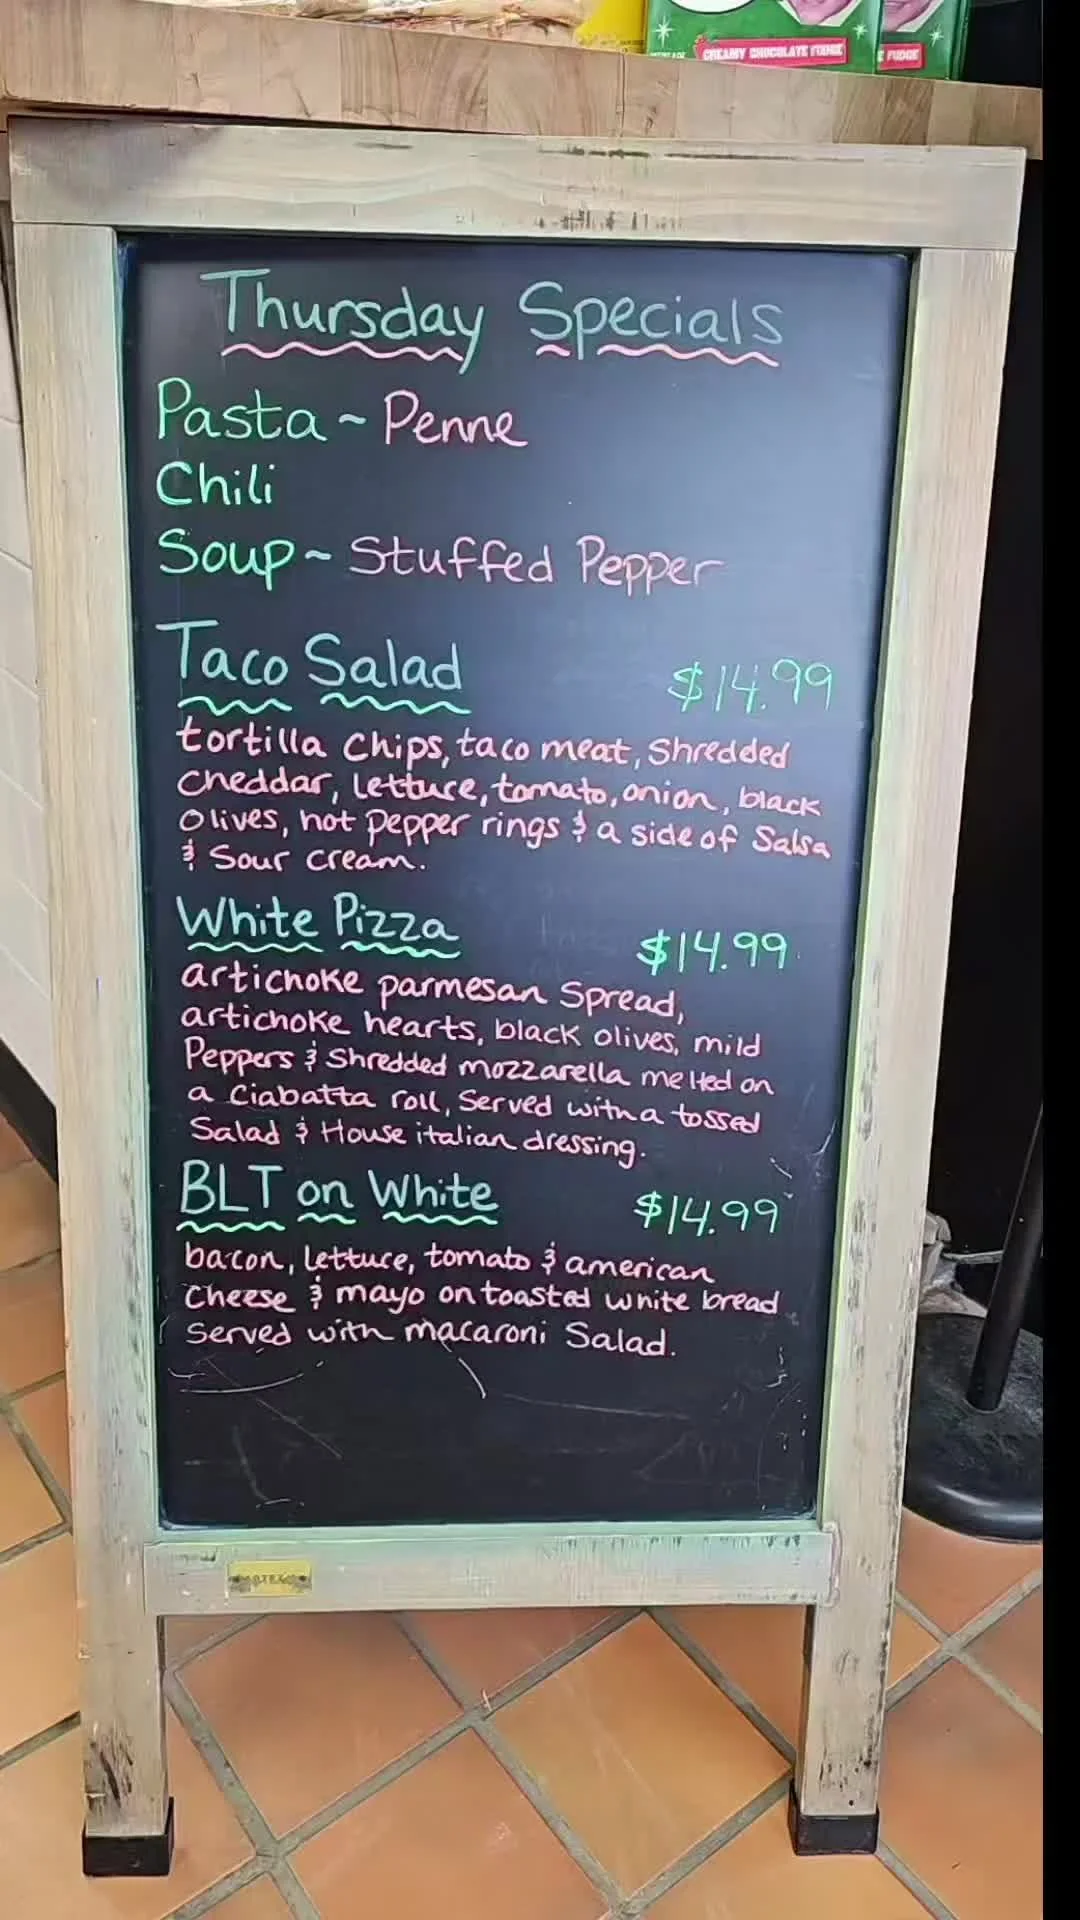 CREAMY CHOCOLATE FUDGE
E FUDGE
Thursday Specials
Pasta ~ Penne
Chili
Soup ~ Stuffed Pepper
Taco Salad $14.99
tortilla chips, taco meat, Shredded
cheddar, lettuce, tomato, onion, black
olives, hot pepper rings & a side of Salsa
& Sour cream.
White Pizza $14.99
artichoke parmesan Spread,
artichoke hearts, black olives, mild
Peppers & Shredded mozzarella melted on
a Ciabatta roll, Served with a tossed
Salad & House italian dressing.
BLT on White $14.99
bacon, lettuce, tomato & american
Cheese & mayo on toasted white bread
Served with macaroni Salad.